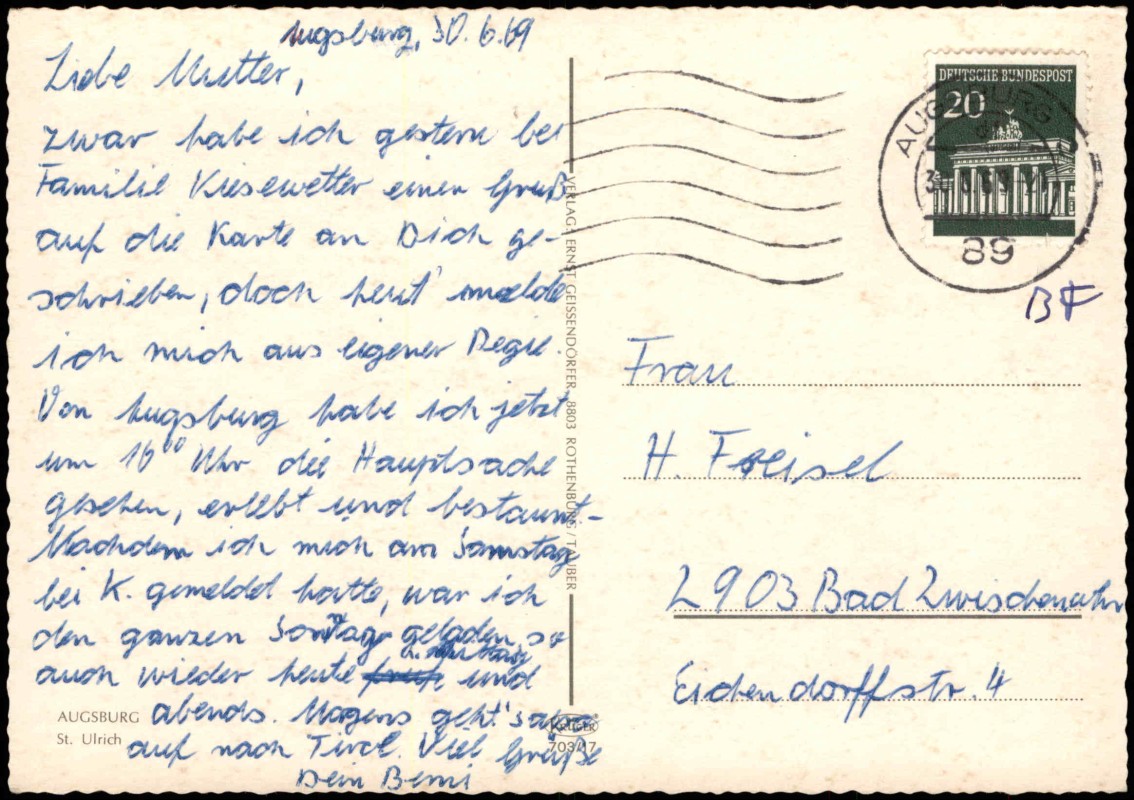 Augsburg, 30.6.69
Liebe Mutter,
zwar habe ich gestern bei
Familie Kiesewetter einen Gruß
auf die Karte an Dich ge-
schrieben, doch heut' melde
ich mich aus eigener Regie.
Von Augsburg habe ich jetzt
um 16⁰⁰ Uhr die Hauptsache
gesehen, erlebt und bestaunt-
Nachdem ich mich am Samstag
bei K. gemeldet hatte, war ich
den ganzen Sonntag geladen, so
auch wieder heute mittag und
abends. Morgens geht's
auf nach Tirol. Viele Grüße
Dein Berni
AUGSBURG
St. Ulrich
VERLAG: ERNST GEISSENDÖRFER, 8803 ROTHENBURG/TAUBER
KRÜGER
703/17
DEUTSCHE BUNDESPOST
20
AUGSBURG
89
BF
Frau
H. Freisel
2903 Bad Zwischenahn
Eichendorffstr. 4